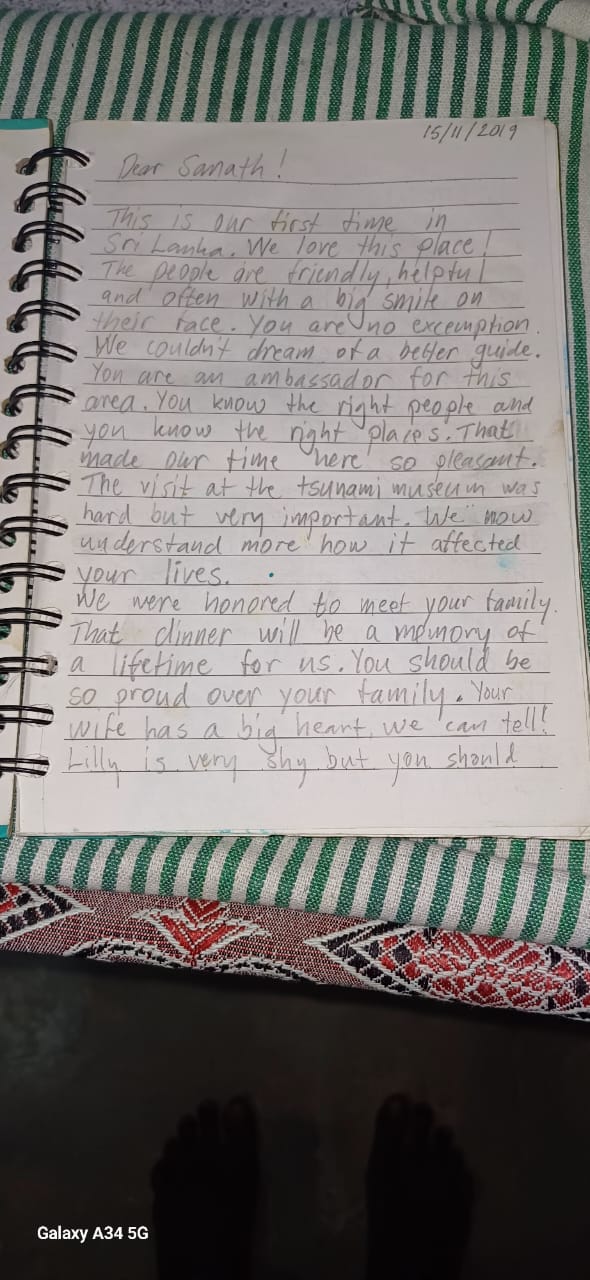 15/11/2019
Dear Sanath!
This is our first time in
Sri Lanka. We love this place!
The people are friendly, helpful
and often with a big smile on
their face. You are no excemption.
We couldn't dream of a better guide.
You are an ambassador for this
area. You know the right people and
you know the right places. That
made our time here so pleasant.
The visit at the tsunami museum was
hard but very important. We now
understand more how it affected
your lives.
We were honored to meet your family.
That dinner will be a memory of
a lifetime for us. You should be
so proud over your family. Your
wife has a big heart, we can tell!
Lilly is very shy but you should
Galaxy A34 5G